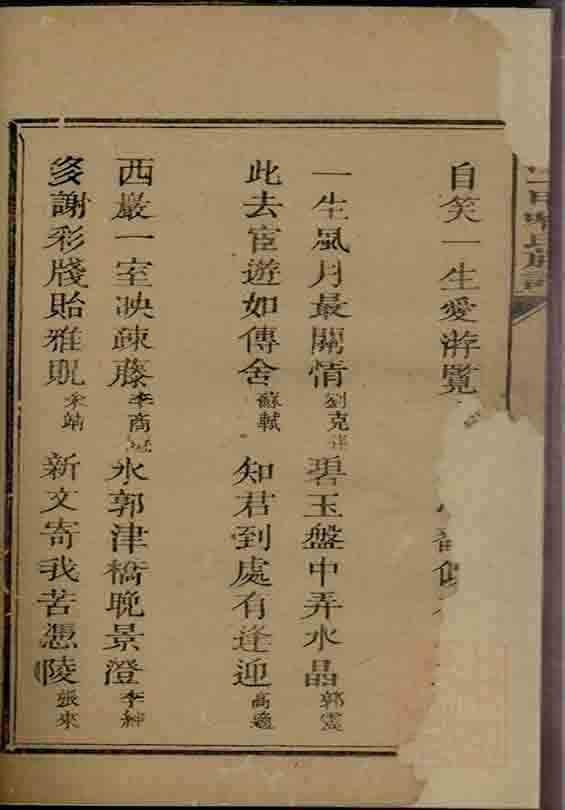 自笑一生愛游覽
一生風月最關情 劉克莊 碧玉盤中弄水晶 郭震
此去宦遊如傳舍 蘇軾 知君到處有逢迎 高適
西巖一室映疎藤 李商 水郭津橋晚景澄 李紳
多謝彩牋貽雅貺 朱端 新文寄我苦憑陵 張來